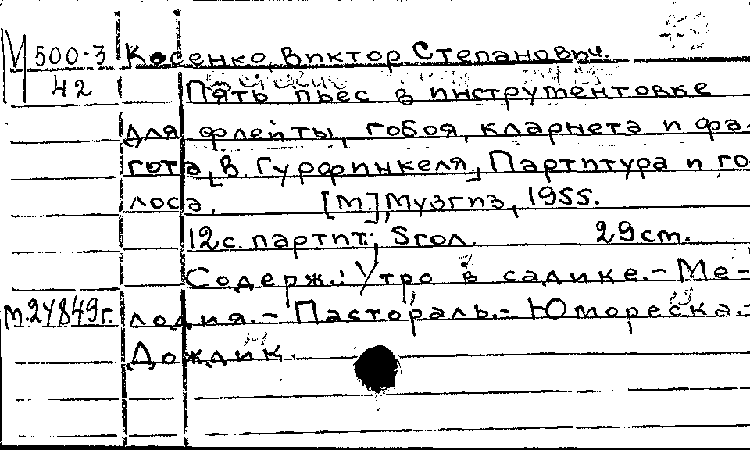 V 500-3 Косенко, Виктор Степанович.
42 Пять пьес в инструментовке
для флейты, гобоя, кларнета и фа-
гота, [В. Гурфинкеля] Партитура и го
лоса. [М], Музгиз, 1955.
12с. партит; 5гол. 29cm.
Содерж.: Утро в садике. - Ме-
М.24849г. лодия. - Пастораль. - Юмореска. -
Дождик.